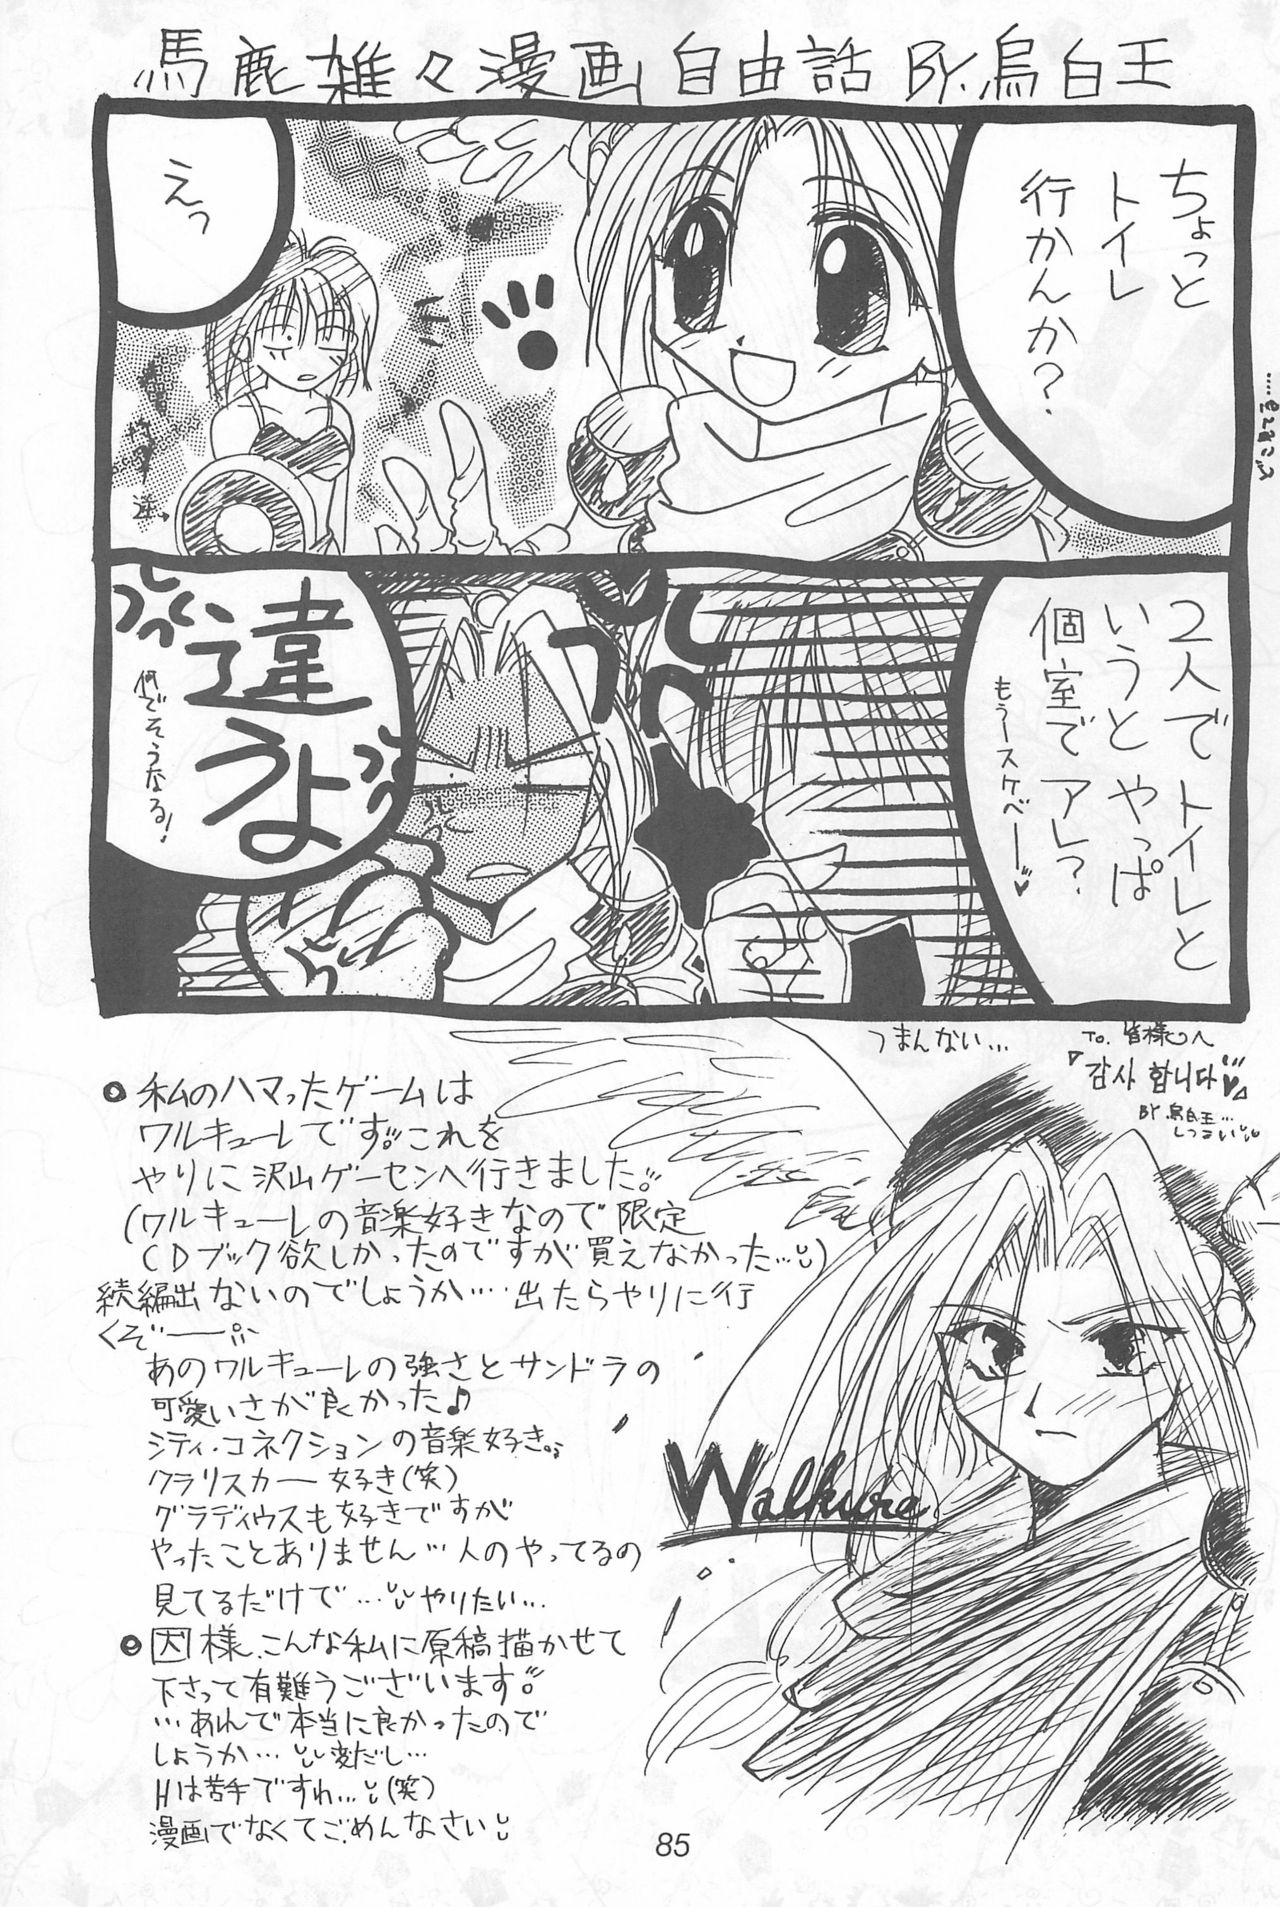 馬鹿雑々漫画 自由話 BY.烏白王
ちょっと
トイレ
行かんか?
えっ
2人でトイレと
いうとやっぱ
個室でアレ?
もぅースケベー♥
違うよ
何でそうなる!
つまんない…
To. 皆様へ
『감사 합니다♥』
BY.烏白王…
しつこい
●私のハマったゲームは
ワルキューレです。これを
やりに沢山ゲーセンへ行きました。
(ワルキューレの音楽好きなので限定
CDブック欲しかったのですが買えなかった…)
続編出ないのでしょうか…. 出たらやりに行
くぞー
あのワルキューレの強さとサンドラの
可愛いさが良かった♪
シティ・コネクションの音楽好き。
クラリスカー好き(笑)
グラディウスも好きですが
やったことありません…人のやってるの
見てるだけで…やりたい…
Walkure
●因様.こんな私に原稿描かせて
下さって有難うございます。
…あれで本当に良かったので
しょうか… 変だし…
Hは苦手ですわ…(笑)
漫画でなくてごめんなさい
85